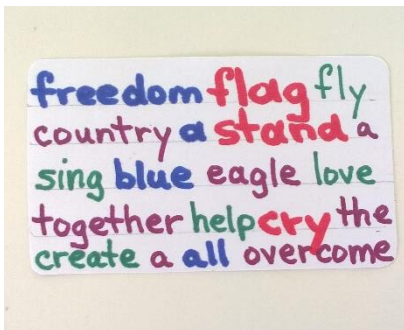 freedom flag fly
country a stand a
sing blue eagle love
together help cry the
create a all overcome